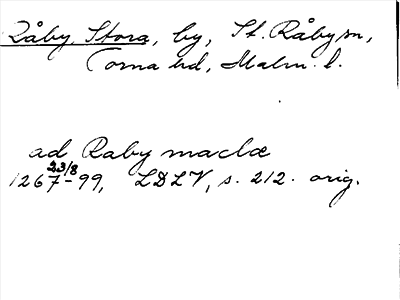 Råby, Stora, by, St. Råby sn,
Torna hd, Malm. l.
ad Raby maclæ
1267 23/8 - 99, LDLV, s. 212. orig.